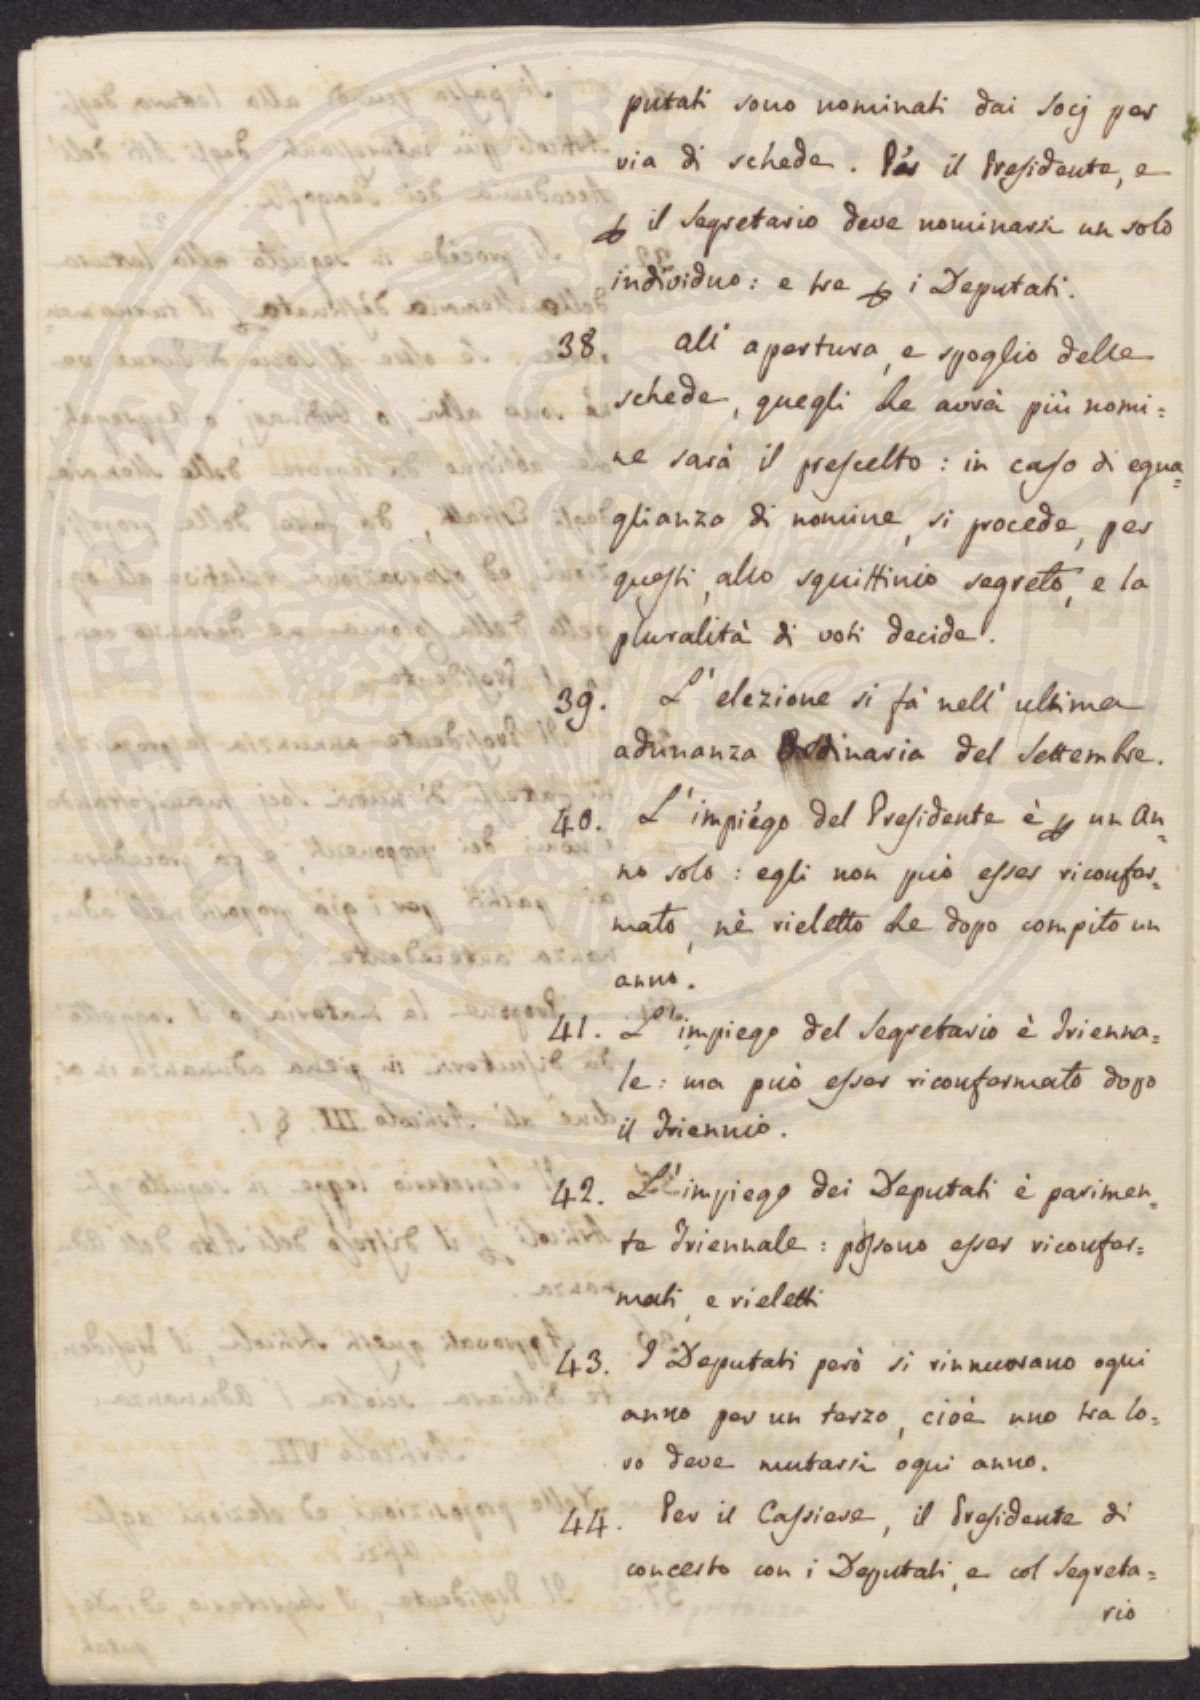 putati sono nominati dai Socj per
via di schede. Per il Presidente, e
p il Segretario deve nominarsi un solo
individuo: e tre p i Deputati.
38. All' apertura, e spoglio delle
schede, quegli che avrà più nomi=
ne sarà il prescelto: in caso di egua=
glianza di nomine, si procede, per
questi, allo squittinio segreto, e la
pluralità di voti decide.
39. L' elezione si fà nell' ultima
adunanza Ordinaria del Settembre.
40. L' impiego del Presidente è p un An=
no solo: egli non può esser riconfer=
mato, nè rieletto che dopo compito un
anno.
41. L' impiego del Segretario è trienna=
le: ma può esser riconfermato dopo
il triennio.
42. L' impiego dei Deputati è parimen=
te triennale: possono esser riconfer=
mati, e rieletti
43. I Deputati però si rinnuovano ogni
anno per un terzo, cioè uno tra lo=
ro deve mutarsi ogni anno.
44. Per il Cassiere, il Presidente di
concerto con i Deputati, e col Segreta=
rio